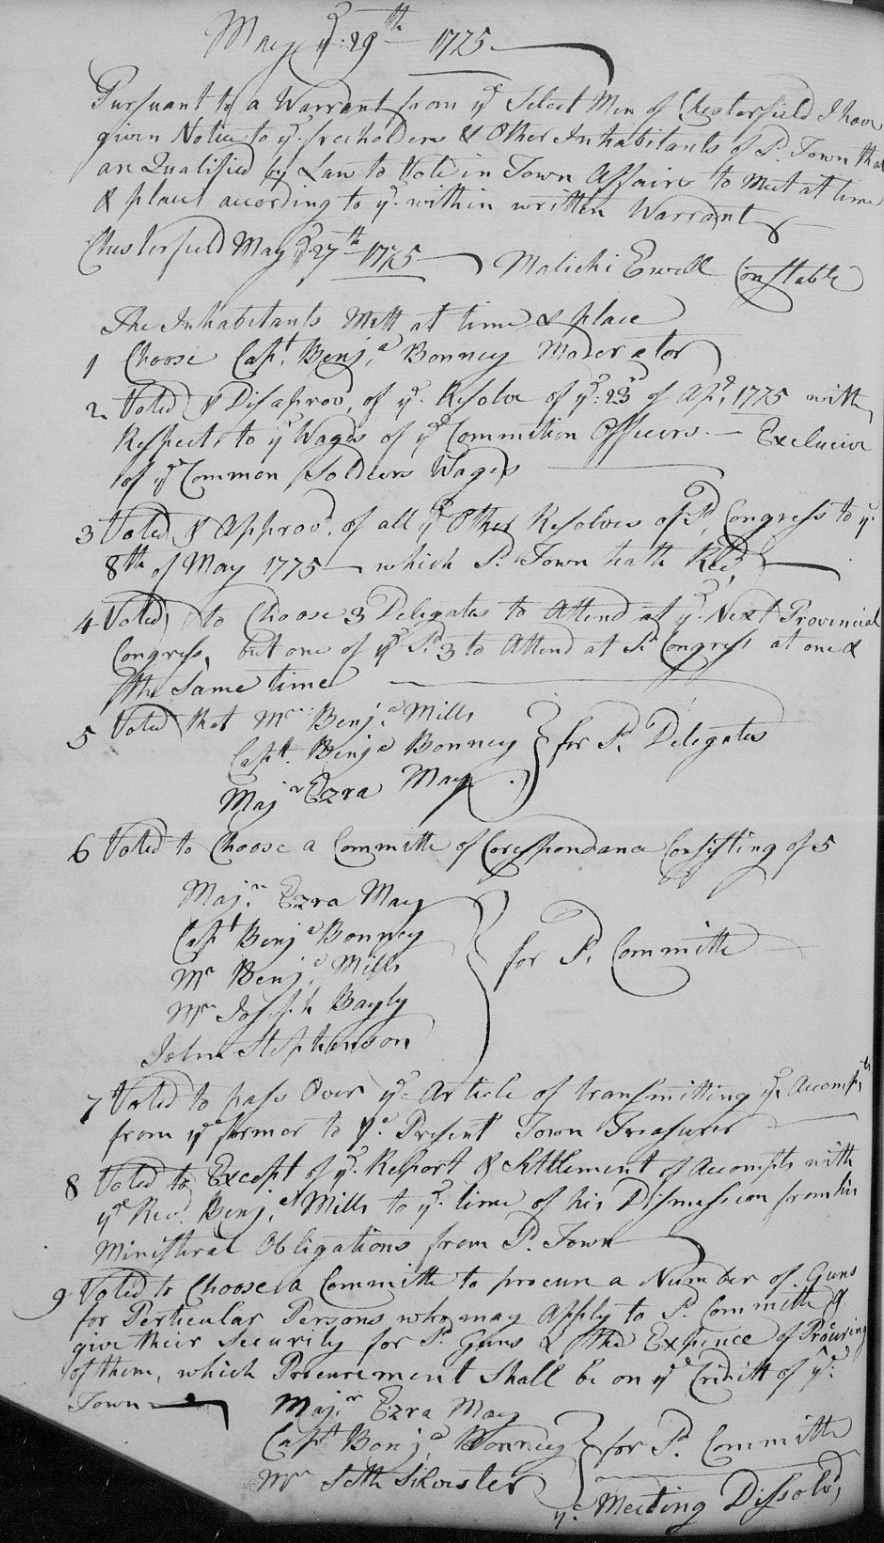 May ye: 29th 1775
Pursuant to a Warrant from ye Select Men of Chesterfield I have
given Notice to ye. freeholders & Other Inhabitants of Sd. Town that
are Qualified by Law to Vote in Town Affairs to Meet at time
& place according to ye. within written Warrant
Chesterfield May ye 27th 1775 Malichi Ewell Constable
The Inhabitants Mett at time & place
1 Choose Capt. Benja. Bonney Moderator
2 Voted & Disaprovd. of ye. Resolve of ye: 23d of Apr. 1775 with
Respect to ye Wages of ye Commition Officers. — Exclucive
of ye Common Soldiers Wages
3 Voted & Approvd. of all ye Other Resolves of Sd. Congress to ye.
8th of May 1775 — which Sd. Town hath Recd
4 Voted to Choose 3 Delegates to Attend at ye. Next Provincial
Congress, but one of ye Sd 3 to Attend at Sd Congress at one &
the Same time
5 Voted that Mr. Benja. Mills
Capt. Benja Bonney } for Sd. Delegates
Majr Ezra May
6 Voted to Choose a Committe of Corespondance Consisting of 5
Majr. Ezra May
Capt Benja Bonney
Mr Benja. Mills } for Sd. Committe
Mr. Joseph Bayly
John Stephenson
7 Voted to pass Over ye. Article of transmitting ye Accompts
from ye former to ye. Present Town Treasurer
8 Voted to Except of ye. Report & Settlement of Accompts with
ye Revd. Benja. Mills to ye. time of his Dismission from his
Ministeral Obligations from Sd. Town
9 Voted to Choose a Committe to procure a Number of Guns
for Perticular Persons who may Apply to Sd. Committe &
give their Security for Sd. Guns & the Expence of Procuring
of them, which Procurement Shall be on ye Criditt of ye:
Town
Majr. Ezra May
Capt Benja. Bonney } for Sd. Committe
Mr Seth Silvester
ye. Meeting Dissolvd,